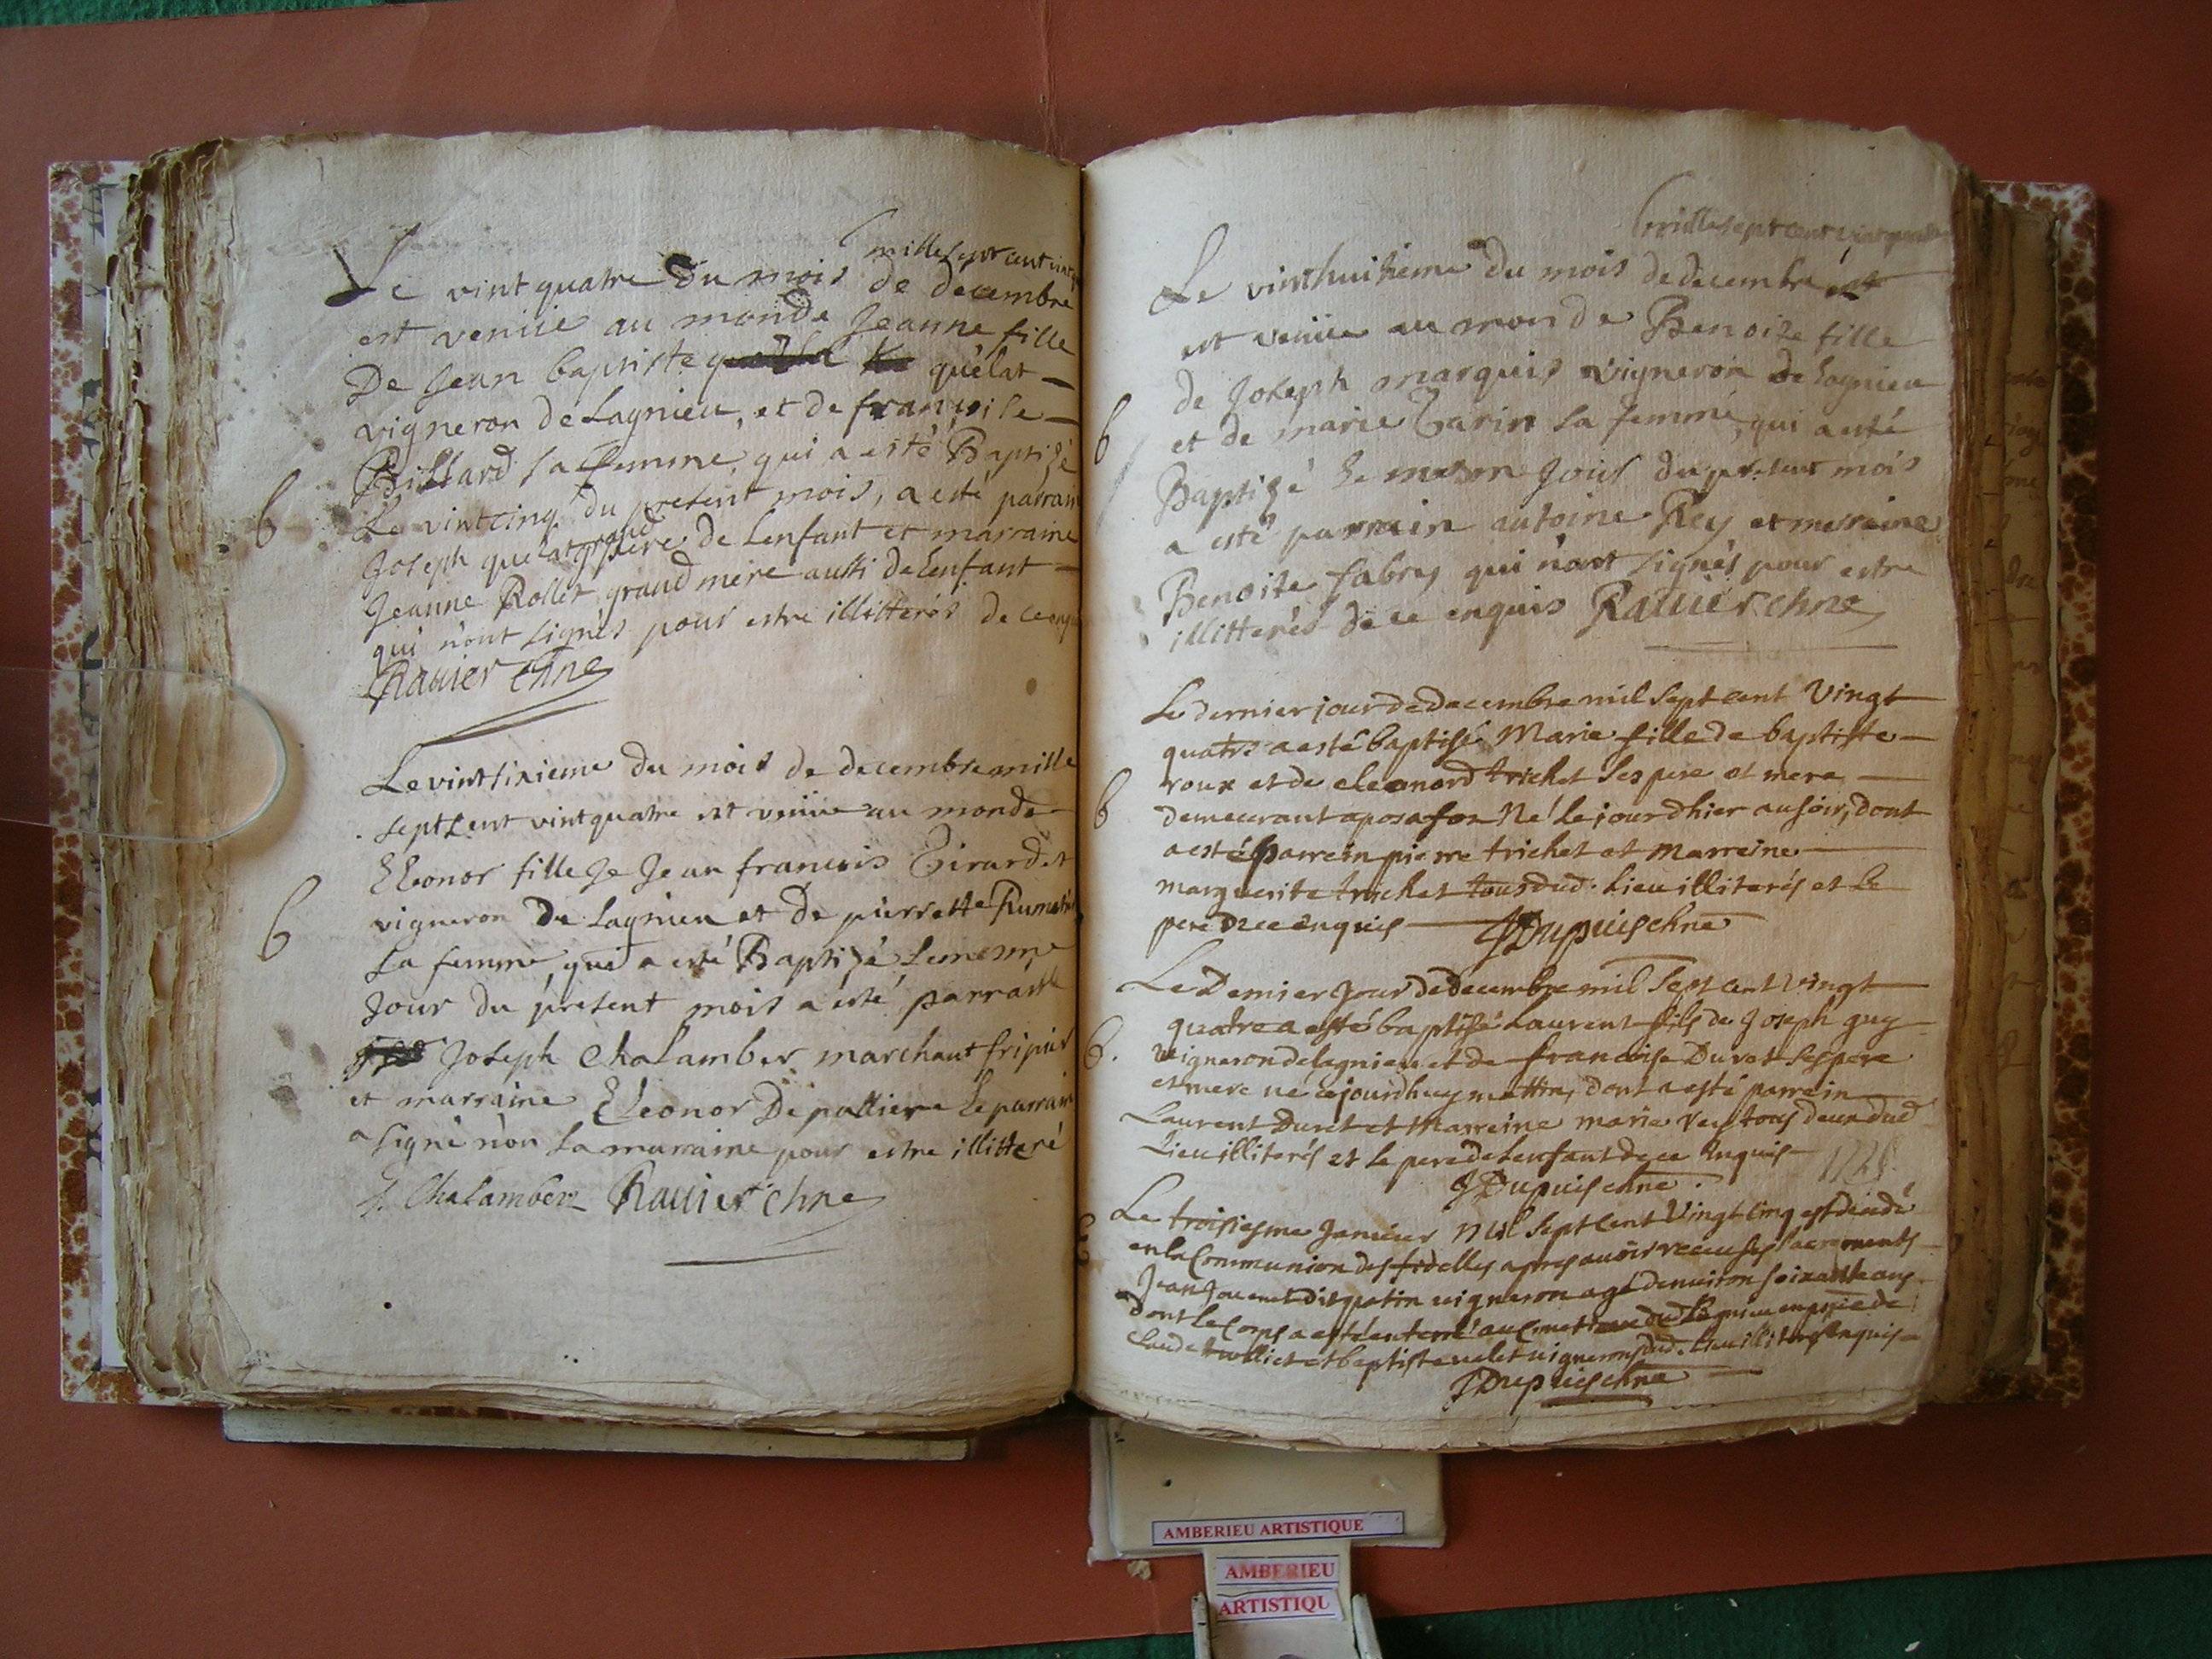 mille sept cent vint
Le vintquatre du mois de decembre
est venüe au monde Jeanne fille
De Jean baptiste quêlat
vigneron de Lagnieu, et de françoise
Billiard sa femme, qui a esté Baptizé
b
Le vintcinq du present mois, a esté parrain
grand
Joseph quelat père de Lenfant et marraine
Jeanne Rollet grand mere aussi de Lenfant
qui n'ont signés pour estre illitterés de ce enq
Rauier chne
Le vintsixieme du mois de decembre mille
sept cent vintquatre est venüe au monde
Eleonor fille de Jean francois Girardet
vigneron de Lagnieu et de pierrette
b
sa femme, qui a esté Baptizé Le mesme
Jour du present mois a esté parrain
Joseph Chalamber marchant fripier
et marraine Eleonor Depalliere Le parrain
a signé n'on La marraine pour estre illitteré
J. Chalamber Rauier chne
mille sept cent vint quatre
Le vinthuitieme du mois de decembre
est venüe au monde Benoite fille
de Joseph marquis vigneron de Lagnieu
b
et de marie Garin sa femme, qui a esté
Baptizé Le mesme Jour du present mois
a esté parrain antoine Rey et marraine
Benoite fabry qui n'ont signés pour estre
illitterés de ce enquis Rauier chne
Le dernier jour de decembre mil sept cent Vingt
quatre a esté baptisé Marie fille de baptiste
roux et de eleonord trichet ses pere et mere
b
demeurant a posafon Né le jourdhier au soir, dont
a esté parrein pierre trichet et Marreine
marguerite trichet tous dud. Lieu illiterés et le
pere de ce enquis JDupuis chne
Le Dernier Jour de decembre mil sept cent vingt
quatre a esté baptisé Laurent fils de Joseph guy
b.
vigneron de lagnieu et de francoise Duret ses pere
et mere né cejourdhuy mattin, dont a esté parrein
Laurent Duret et Marreine marie Rey tous deux dud
Lieu illiterés et le pere de Lenfant de ce Enquis
JDupuis chne.
1725.
Le troisiesme Januier Mil sept cent Vingt cinq est décédé
en la Communion des fidelles apres auoir receu ses sacrements
Jean Jouenet dit patin uigneron agé denuiron soixante ans
dont le corps a esté enterré au Cimettiere dud Lagnieu en pnce de
claude et baptiste uelet uignerons dud. Lieu illiterés Enquis
JDupuis chne
AMBERIEU ARTISTIQUE
AMBERIEU
ARTISTIQU